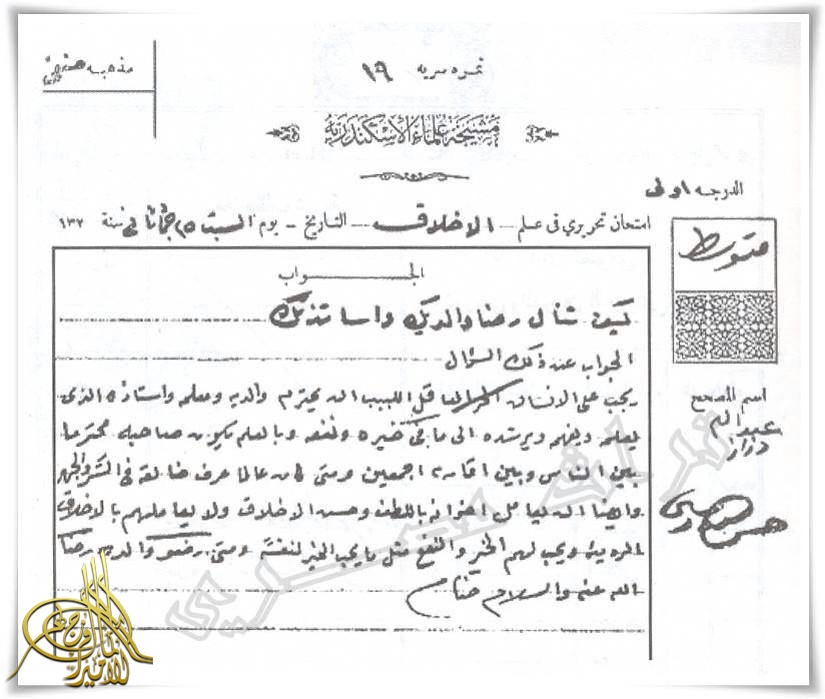 نمره سريه ١٩
مذهبه حنفي
مشيخة علماء الاسكندرية
الدرجه اولى
امتحان تحريري في علم - الاخلاق - التاريخ - يوم السبت ٢٥ سنة ١٣٢
متوسط
الجواب
كيف تنال رضا والديك واساتذتك
الجواب عن ذلك السؤال
يجب على الانسان العاقل اللبيب ان يحترم والديه ومعلمه واستاذه الذى
يعلمه ويفهمه ويرشده الى ما فيه خيره ونفعه وبالعلم يكون صاحبه محترما
بين الناس وبين اقاربه اجمعين ومتى كان عالما عرف خالقه فى السر والجهر
وايضا ان يعامل اخوانه باللطف وحسن الاخلاق ولا يعاملهم بالاخلاق
الرديئة ويحب لهم الخير والنفع مثل ما يحب الخير لنفسه ومتى والديه رضى
الله عنه والسلام ختام
اسم المصحح
عبد
دراز
حسن